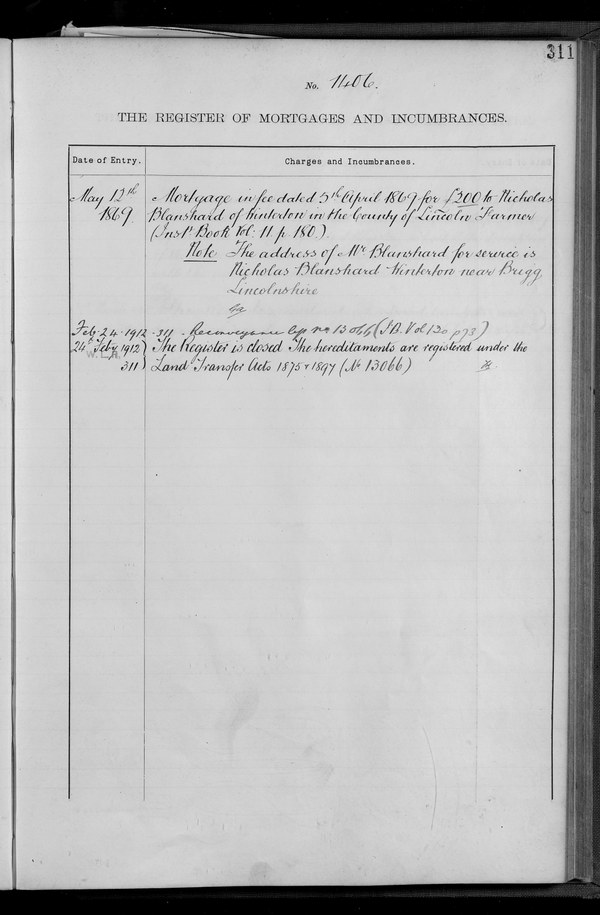 311
No. 1406.
THE REGISTER OF MORTGAGES AND INCUMBRANCES.
Date of Entry.
Charges and Incumbrances.
May 12th
1869
Mortgage in fee dated 5th April 1869 for £200 to Nicholas
Blanshard of Winterton in the County of Lincoln Farmer
(Inst. Book Vol. 11 p. 180.)
Note The address of Mr Blanshard for service is
Nicholas Blanshard Winterton near Brigg
Lincolnshire
Feb. 24. 1912 . 311 . Reconveyance No 13066 (Vol 130 p 73)
24th Feby 1912)
The Register is closed The hereditaments are registered under the
311)
Land Transfer Acts 1875 & 1897 (No 13066)